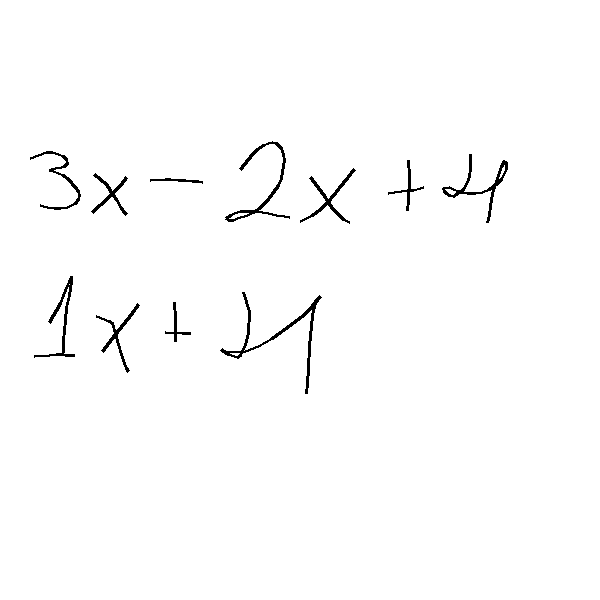 3x - 2x + 4
1x + 4